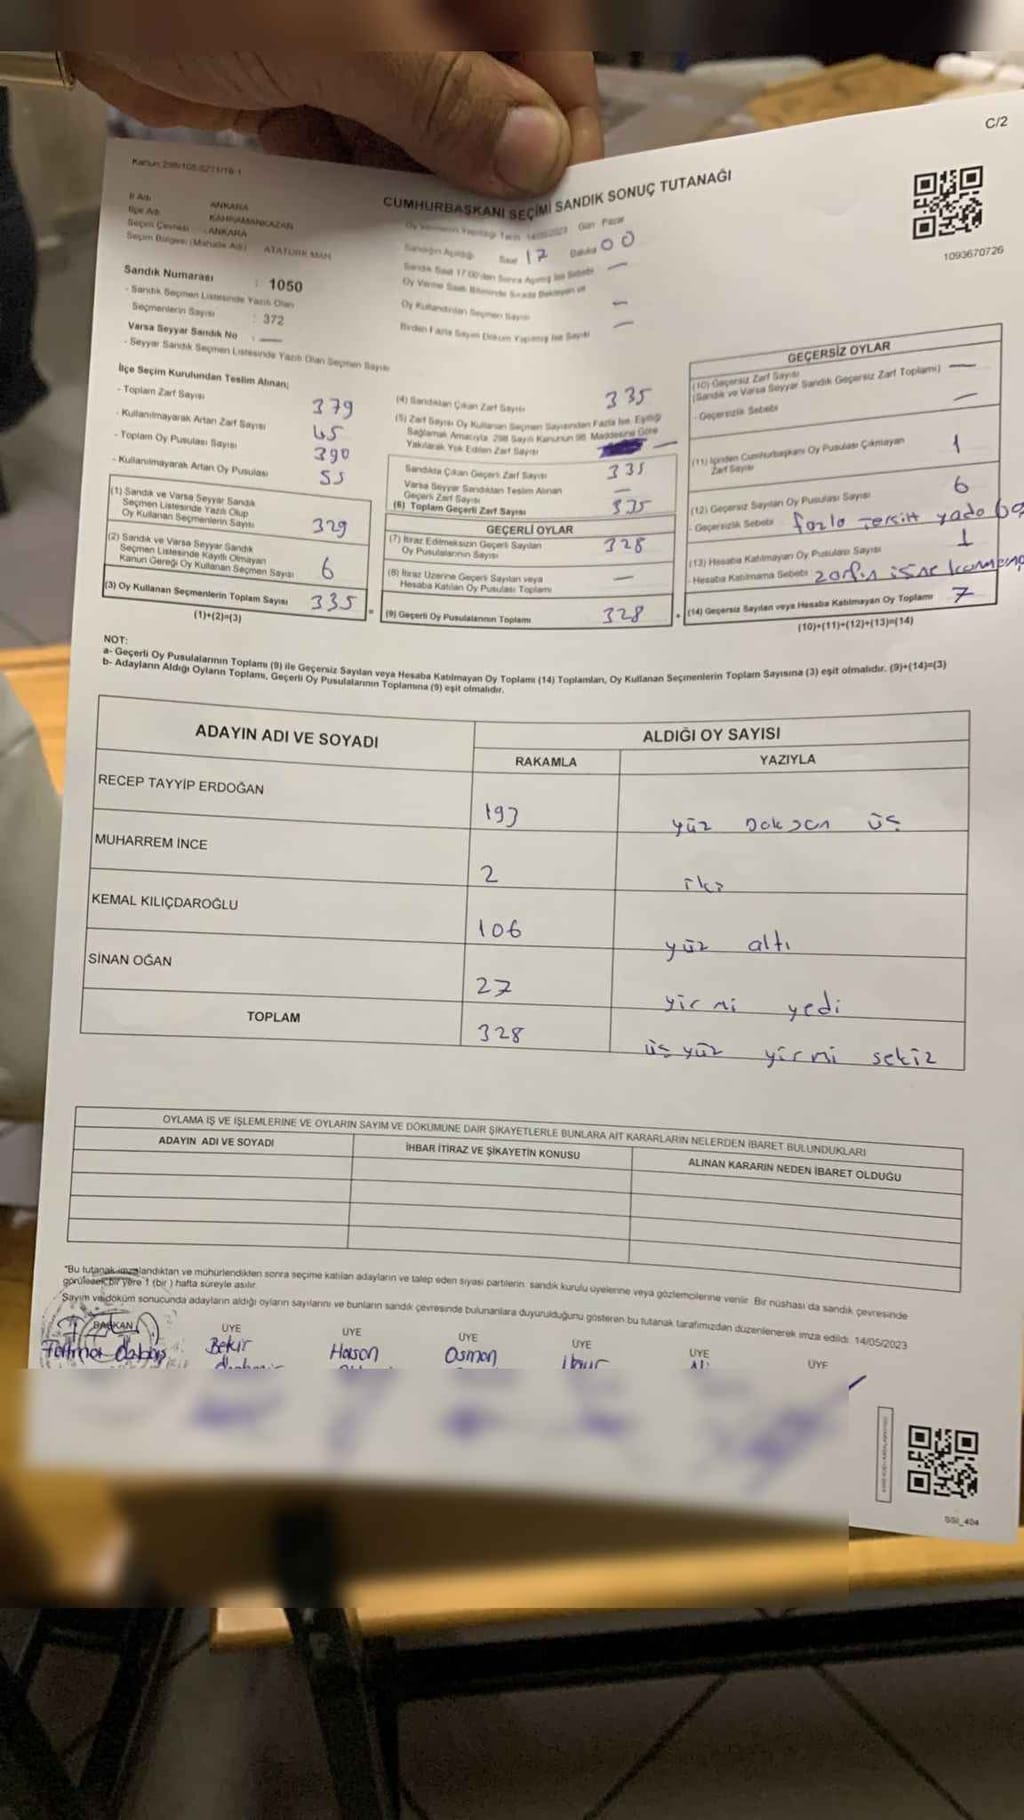 C/2
Kanun 298/105
CUMHURBAŞKANI SEÇİMİ SANDIK SONUÇ TUTANAĞI
1093670726
İl Adı ANKARA
İlçe Adı KAHRAMANKAZAN
Seçim Çevresi : ANKARA
Seçim Bölgesi (Mahalle Adı) ATATÜRK MAH
Oy Vermenin Yapıldığı Tarih 14/05/2023 Gün Pazar
Sandığın Açıldığı Saat 17 Dakika 00
Sandık Saat 17.00'den Sonra Açılmış İse Sebebi —
Oy Verme Saati Bitiminde Sırada Bekleyen ve
Oy Kullandırılan Seçmen Sayısı —
Birden Fazla Sayım Döküm Yapılmış İse Sayısı —
Sandık Numarası : 1050
- Sandık Seçmen Listesinde Yazılı Olan
Seçmenlerin Sayısı : 372
Varsa Seyyar Sandık No : —
- Seyyar Sandık Seçmen Listesinde Yazılı Olan Seçmen Sayısı
İlçe Seçim Kurulundan Teslim Alınan;
- Toplam Zarf Sayısı 379
- Kullanılmayarak Artan Zarf Sayısı 45
- Toplam Oy Pusulası Sayısı 390
- Kullanılmayarak Artan Oy Pusulası 55
(1) Sandık ve Varsa Seyyar Sandık
Seçmen Listesinde Yazılı Olup
Oy Kullanan Seçmenlerin Sayısı 329
(2) Sandık ve Varsa Seyyar Sandık
Seçmen Listesinde Kayıtlı Olmayan
Kanun Gereği Oy Kullanan Seçmen Sayısı 6
(3) Oy Kullanan Seçmenlerin Toplam Sayısı 335
(1)+(2)=(3)
(4) Sandıktan Çıkan Zarf Sayısı 335
(5) Zarf Sayısı Oy Kullanan Seçmen Sayısından Fazla İse, Eşitliği
Sağlamak Amacıyla 298 Sayılı Kanunun 98. Maddesine Göre
Yakılarak Yok Edilen Zarf Sayısı —
Sandıkta Çıkan Geçerli Zarf Sayısı 335
Varsa Seyyar Sandıktan Teslim Alınan
Geçerli Zarf Sayısı —
(6) Toplam Geçerli Zarf Sayısı 335
GEÇERLİ OYLAR
(7) İtiraz Edilmeksizin Geçerli Sayılan
Oy Pusulalarının Sayısı 328
(8) İtiraz Üzerine Geçerli Sayılan veya
Hesaba Katılan Oy Pusulası Toplamı —
= (9) Geçerli Oy Pusulalarının Toplamı 328
GEÇERSİZ OYLAR
(10) Geçersiz Zarf Sayısı
(Sandık ve Varsa Seyyar Sandık Geçersiz Zarf Toplamı) —
- Geçersizlik Sebebi —
(11) İçinden Cumhurbaşkanı Oy Pusulası Çıkmayan
Zarf Sayısı 1
(12) Geçersiz Sayılan Oy Pusulası Sayısı 6
- Geçersizlik Sebebi fazla tercih yada
(13) Hesaba Katılmayan Oy Pusulası Sayısı 1
- Hesaba Katılmama Sebebi
+ (14) Geçersiz Sayılan veya Hesaba Katılmayan Oy Toplamı 7
(10)+(11)+(12)+(13)=(14)
NOT:
a- Geçerli Oy Pusulalarının Toplamı (9) ile Geçersiz Sayılan veya Hesaba Katılmayan Oy Toplamı (14) Toplamları, Oy Kullanan Seçmenlerin Toplam Sayısına (3) eşit olmalıdır. (9)+(14)=(3)
b- Adayların Aldığı Oyların Toplamı, Geçerli Oy Pusulalarının Toplamına (9) eşit olmalıdır.
ADAYIN ADI VE SOYADI ALDIĞI OY SAYISI
RAKAMLA YAZIYLA
RECEP TAYYİP ERDOĞAN 193 yüz Doksan üç
MUHARREM İNCE 2 iki
KEMAL KILIÇDAROĞLU 106 yüz altı
SİNAN OĞAN 27 yirmi yedi
TOPLAM 328 üç yüz yirmi sekiz
OYLAMA İŞ VE İŞLEMLERİNE VE OYLARIN SAYIM VE DÖKÜMÜNE DAİR ŞİKAYETLERLE BUNLARA AİT KARARLARIN NELERDEN İBARET BULUNDUKLARI
ADAYIN ADI VE SOYADI İHBAR İTİRAZ VE ŞİKAYETİN KONUSU ALINAN KARARIN NEDEN İBARET OLDUĞU
"Bu tutanak imzalandıktan ve mühürlendikten sonra seçime katılan adayların ve talep eden siyasi partilerin sandık kurulu üyelerine veya gözlemcilerine verilir. Bir nüshası da sandık çevresinde
görülecek bir yere 1 (bir) hafta süreyle asılır.
Sayım ve döküm sonucunda adayların aldığı oyların sayılarını ve bunların sandık çevresinde bulunanlara duyurulduğunu gösteren bu tutanak tarafımızdan düzenlenerek imza edildi. 14/05/2023
BAŞKAN ÜYE ÜYE ÜYE ÜYE ÜYE ÜYE
Fatma Bekir Hasan Osman
SSI_404